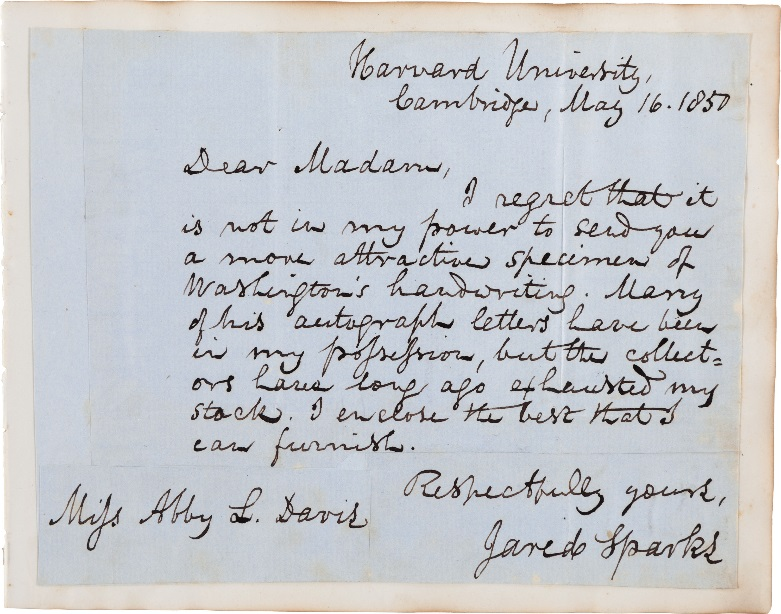 Harvard University,
Cambridge, May 16. 1850
Dear Madam,
I regret that it
is not in my power to send you
a more attractive specimen of
Washington's handwriting. Many
of his autograph letters have been
in my possession, but the collect=
ors have long ago exhausted my
stock. I enclose the best that I
can furnish.
Respectfully yours,
Miss Abby L. Davis
Jared Sparks